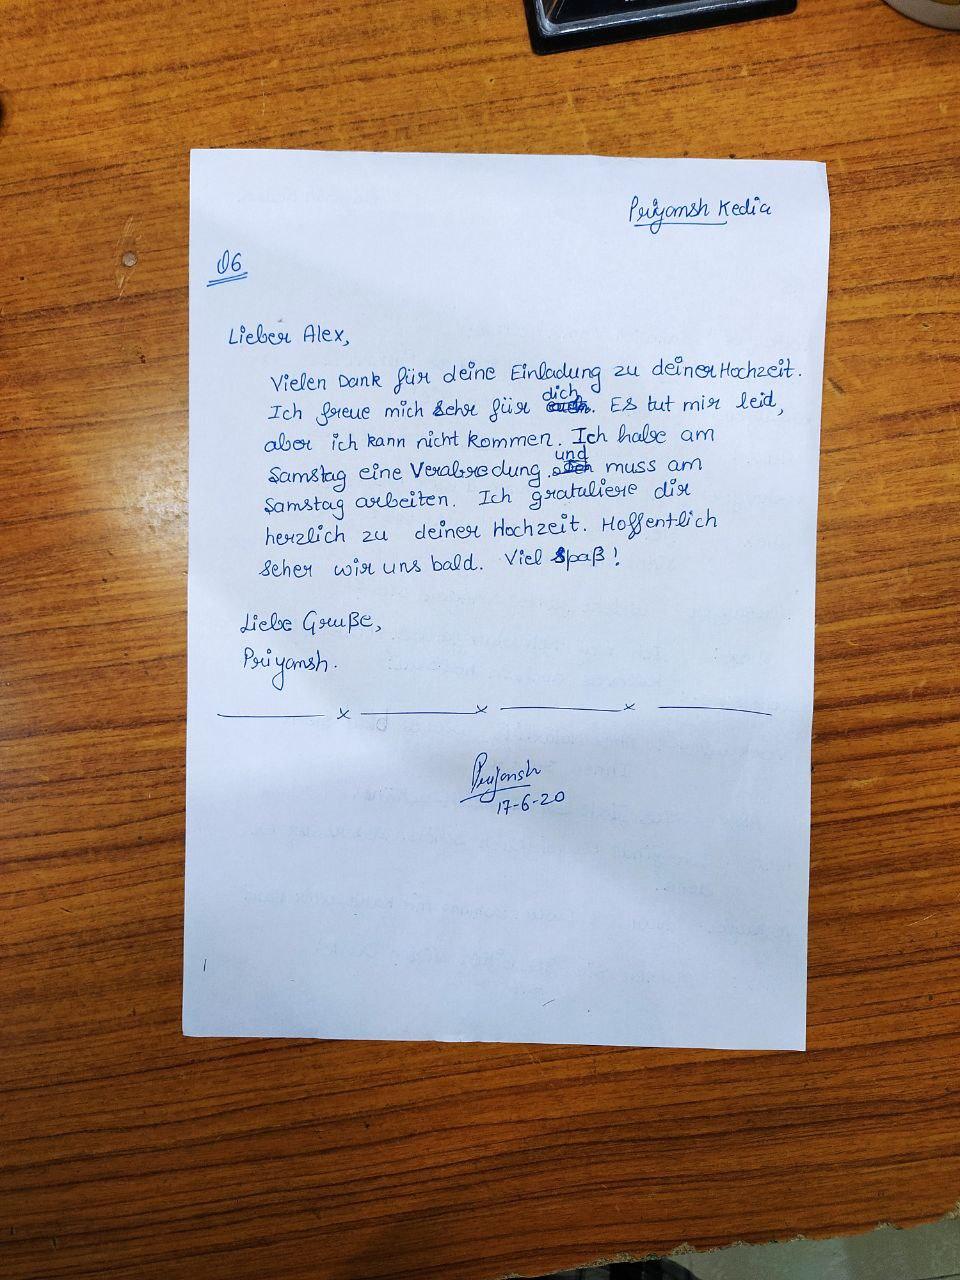 Priyansh Kedia
Q6
Lieber Alex,
Vielen Dank für deine Einladung zu deiner Hochzeit.
Ich freue mich sehr für dich. Es tut mir leid,
aber ich kann nicht kommen. Ich habe am
Samstag eine Verabredung und muss am
Samstag arbeiten. Ich grataliere dir
herzlich zu deiner Hochzeit. Hoffentlich
seher wir uns bald. Viel Spaß!
Liebe Gruße,
Priyansh.
Priyansh
17-6-20